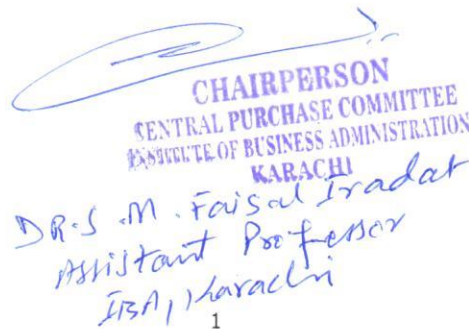 CHAIRPERSON
CENTRAL PURCHASE COMMITTEE
INSTITUTE OF BUSINESS ADMINISTRATION
KARACHI
DR.S.M. Faisal Iradat
Assistant Professor
IBA, Karachi
1